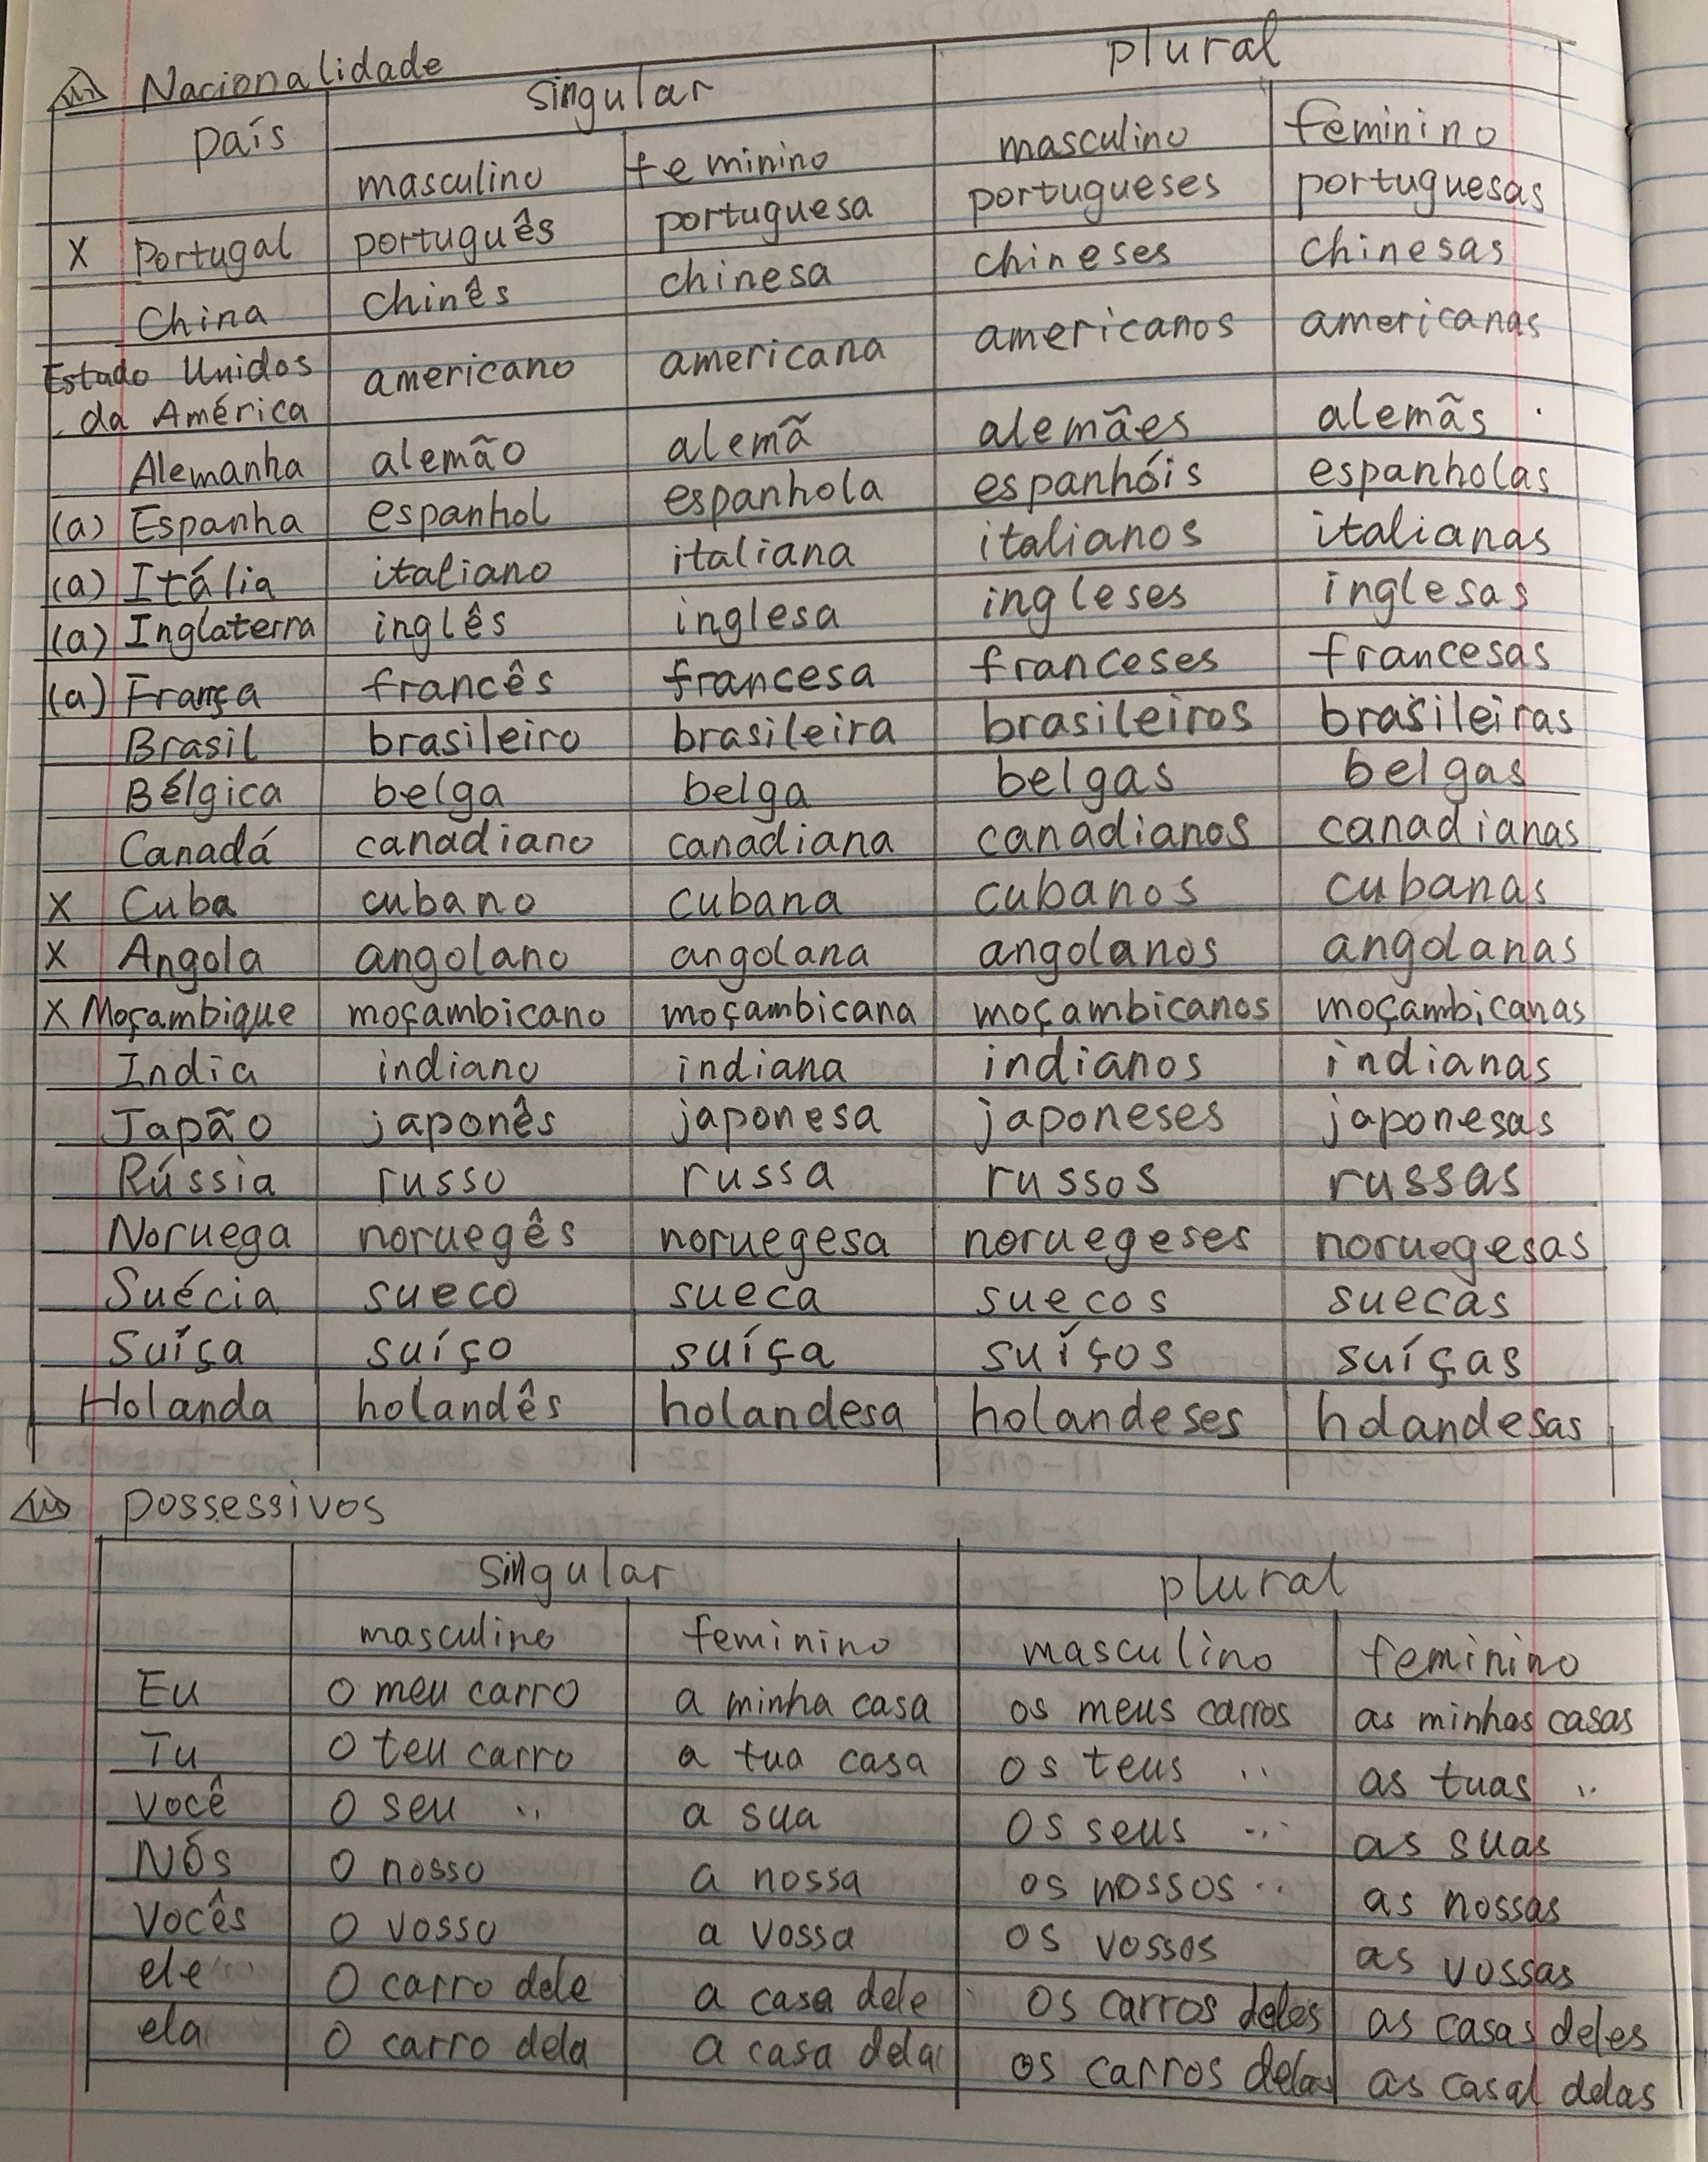 Nacionalidade
país singular plural
masculino feminino masculino feminino
X Portugal português portuguesa portugueses portuguesas
China chinês chinesa chineses chinesas
Estado Unidos da América americano americana americanos americanas
Alemanha alemão alemã alemães alemãs
(a) Espanha espanhol espanhola espanhóis espanholas
(a) Itália italiano italiana italianos italianas
(a) Inglaterra inglês inglesa ingleses inglesas
(a) França francês francesa franceses francesas
Brasil brasileiro brasileira brasileiros brasileiras
Bélgica belga belga belgas belgas
Canadá canadiano canadiana canadianos canadianas
X Cuba cubano cubana cubanos cubanas
X Angola angolano angolana angolanos angolanas
X Moçambique moçambicano moçambicana moçambicanos moçambicanas
India indiano indiana indianos indianas
Japão japonês japonesa japoneses japonesas
Rússia russo russa russos russas
Noruega noruegês noruegesa noruegeses noruegesas
Suécia sueco sueca suecos suecas
Suíça suíço suíça suíços suíças
Holanda holandês holandesa holandeses holandesas
possessivos
singular plural
masculino feminino masculino feminino
Eu o meu carro a minha casa os meus carros as minhas casas
Tu o teu carro a tua casa os teus " as tuas "
você o seu " a sua os seus " as suas
Nós o nosso a nossa os nossos " as nossas
Vocês o vosso a vossa os vossos as vossas
ele o carro dele a casa dele os carros deles as casas deles
ela o carro dela a casa dela os carros delas as casal delas